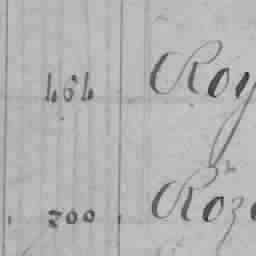 464 Roy
200 Roz